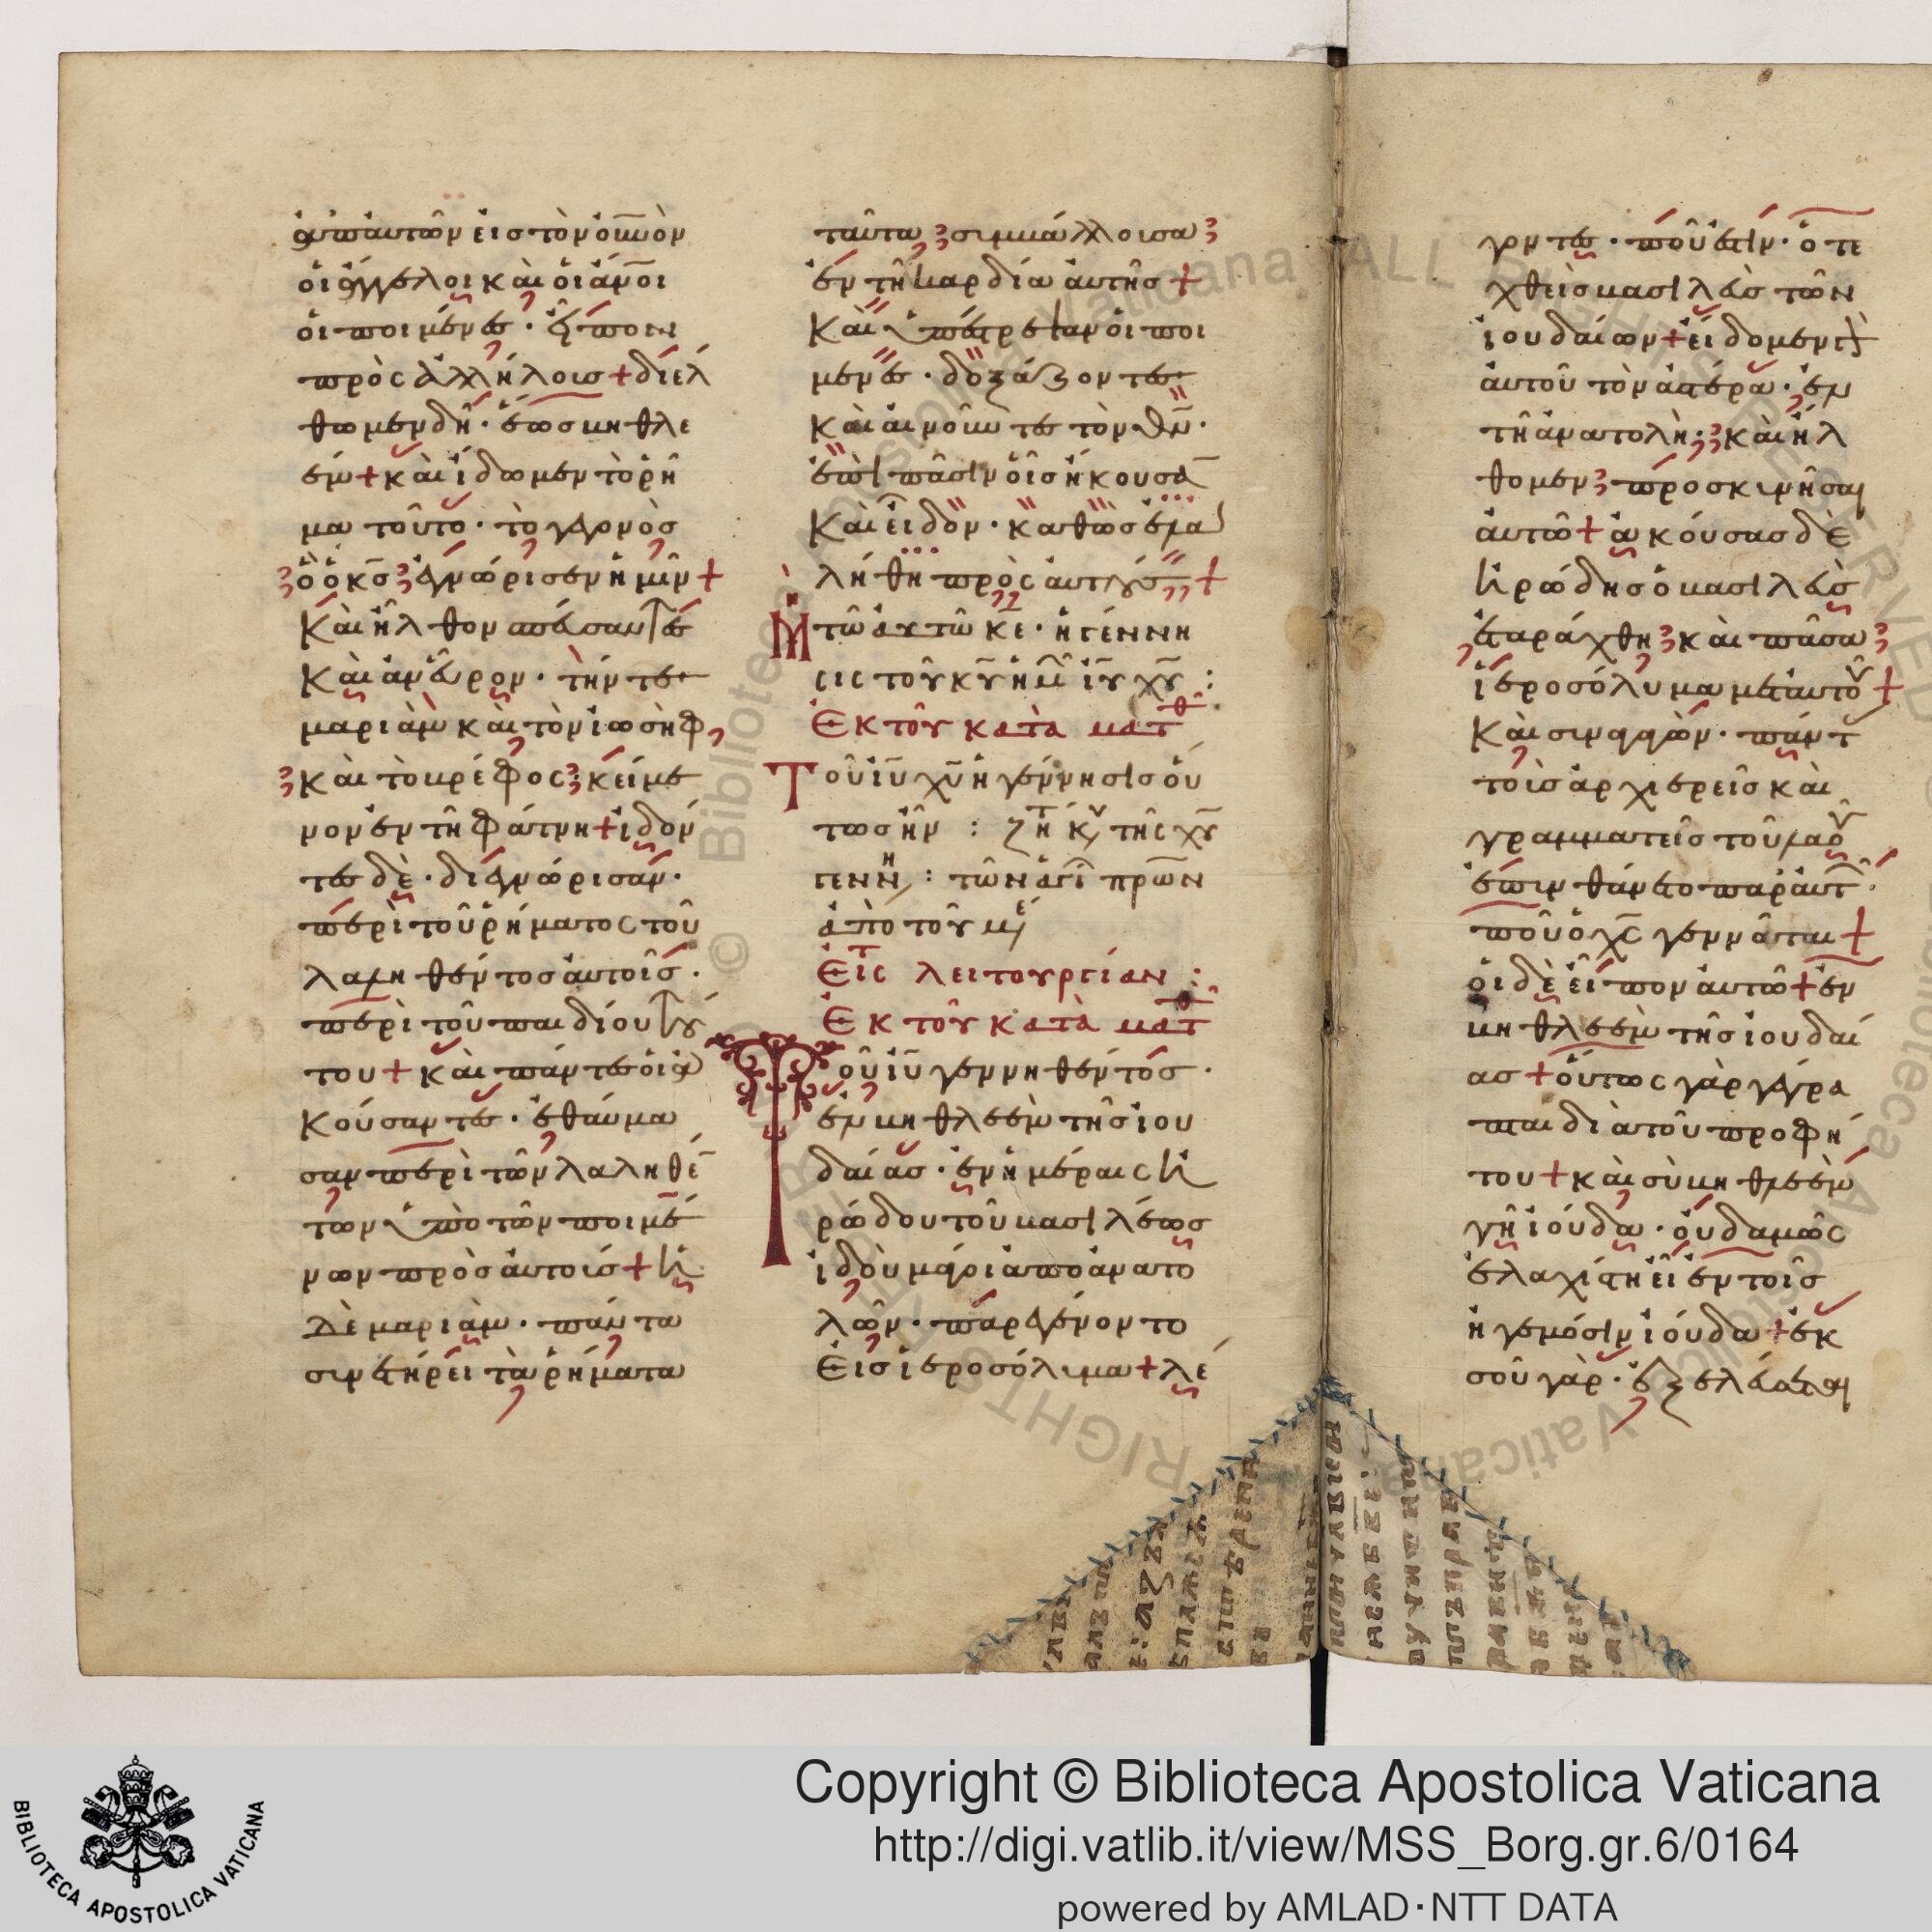 ἀπαὐτῶν εἰς τὸν οὐνὸν
οἱ ἄγγελοι καὶ οἱ ἄνοι
οἱ ποιμένες · εἶπον
πρὸς ἀλλήλοις + διέλ
θωμεν δὴ · ἕως βηθλε
ὲμ + καὶ ἴδωμεν τὸ ῥῆ
μα τοῦτο · τὸ γεγονὸς
ὃ ὁ κς ἐγνώρισεν ἡμῖν +
Καὶ ἦλθον σπεύσαντες
Καὶ ἀνεῦρον · τήν τε
μαριὰμ καὶ τὸν ἰωσὴφ
καὶ τὸ βρέφος κείμε
νον ἐν τῆ φάτνη + ἰδόν
τες δὲ · διεγνώρισαν ·
περὶ τοῦ ῥήματος τοῦ
λαληθέντος αὐτοῖς ·
περὶ τοῦ παιδίου τού
του + καὶ πάντες οἱ ἀ
κούσαντες · ἐθαύμα
σαν περὶ τῶν λαληθέ
των ὑπὸ τῶν ποιμέ
νων πρὸς αὐτοις + ἡ
Δὲ μαριὰμ · πάντα
συνετήρει τὰ ῥήματα
ταῦτα συμβάλλουσα
ἐν τῆ καρδία αὐτῆς +
Καὶ ὑπέστρεψαν οἱ ποι
μένες · δοξάζοντες
Καὶ αἰνοῦντες τὸν θν ·
ἐπὶ πᾶσιν οἷς ἤκουσα
Καὶ εἶδον · καθὼς ἐλα
λήθη πρὸς αὐτούς +
Μ τῶ αυτῶ κε · ἡ γέννη
σις τοῦ κυ ἡμ ιυ χυ :
Ἐκ τοῦ κατὰ ματθ
Τοῦ ιυ χυ ἡ γέννησις οὕ
τως ἦν : ζητ κυ τῆς χυ
γενν : τῶν ἁγι πρων
ἀπὸ τοῦ με
Εἰς τ λειτουργίαν :
Ἐκ τοῦ κατὰ ματ
Τοῦ ιυ γεννηθέντος ·
ἐν βηθλεὲμ τῆς ἰου
δαίας · ἐν ἡμέραις ἡ
ρώδου τοῦ βασιλέως
ἰδοὺ μάγοι ἀπο ἀνατο
λῶν · παρεγένοντο
Εἰς ἱεροσόλυμα + λέ
γοντες · ποῦ ἐστὶν · ὁ τε
χθεὶς βασιλεὺς τῶν
ἰουδαίων + εἴδομεν γὰρ
αὐτοῦ τὸν ἀστέρα · ἐν
τῆ ἀνατολῆ · καὶ ἤλ
θομεν προσκυνῆσαι
αὐτῶ + ἀκούσας δὲ
ἡρώδης ὁ βασιλεὺς
ἐταράχθη καὶ πᾶσα
ἱεροσόλυμα μεταυτοῦ +
Καὶ συναγαγὼν · πάντ
τοὺς ἀρχιερεῖς καὶ
γραμματεῖς τοῦ λαοῦ
ἐπυνθάνετο παραυτ ·
ποῦ ὁ χς γεννᾶται +
οἱ δὲ εἶπον αὐτῶ + ἐν
βηθλεὲμ τῆς ἰουδαί
ας + οὕτως γὰρ γέγρα
πται διὰ τοῦ προφή
του + καὶ σὺ βηθλεὲμ
γῆ ἰούδα · οὐδαμῶς
ἐλαχίστη εἶ ἐν τοῖς
ἡγεμόσιν ἰούδα + ἐκ
σοῦ γὰρ · ἐξελεύσεται
Copyright © Biblioteca Apostolica Vaticana
http://digi.vatlib.it/view/MSS_Borg.gr.6/0164
powered by AMLAD·NTT DATA
BIBLIOTECA APOSTOLICA VATICANA